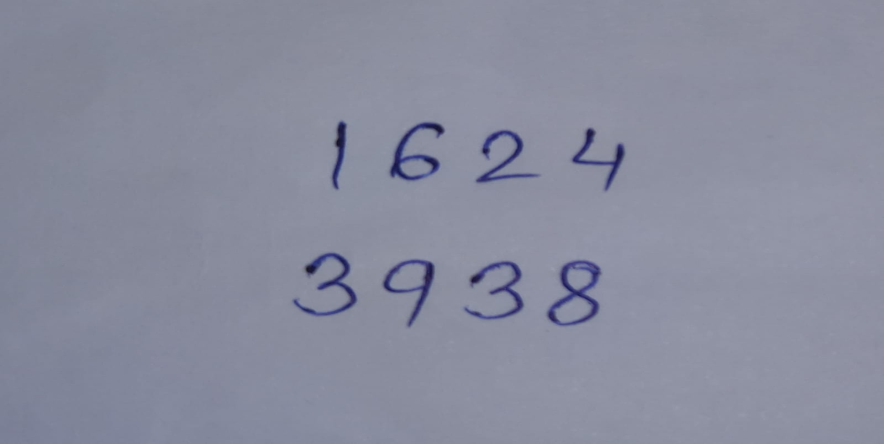 1 6 2 4
3 9 3 8